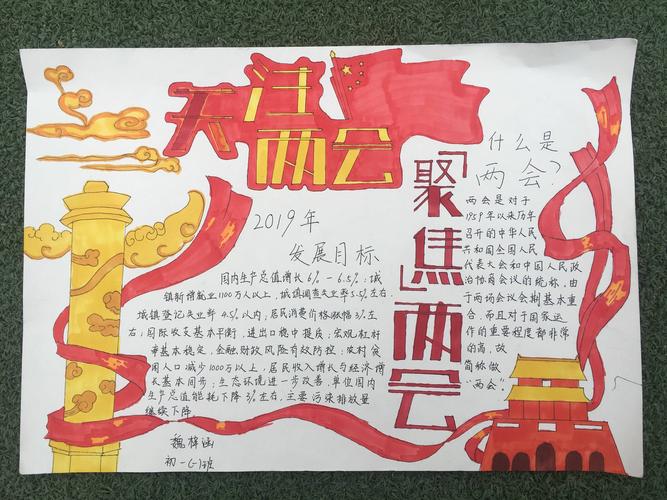 关注
两会
「聚焦」两会
2019年
发展目标
国内生产总值增长6%-6.5%;城
镇新增就业1100万人以上,城镇调查失业率5.5%左右
城镇登记失业率4.5%以内;居民消费价格涨幅3%左
右;国际收支基本平衡,进出口稳中提质;宏观杠杆
率基本稳定,金融财政风险有效防控;农村贫
困人口减少1000万以上,居民收入增长与经济增
长基本同步;生态环境进一步改善,单位国内
生产总值能耗下降3%左右,主要污染排放量
继续下降
魏梓涵
初一(-)班
什么是
两会?
两会是对于
1959年以来历年
召开的中华人民
共和国全国人民
代表大会和中国人民政
治协商会议的统称,由
于两场会议会期基本重
合,而且对于国家运
作的重要程度都非常
的高,故
简称做
“两会”。